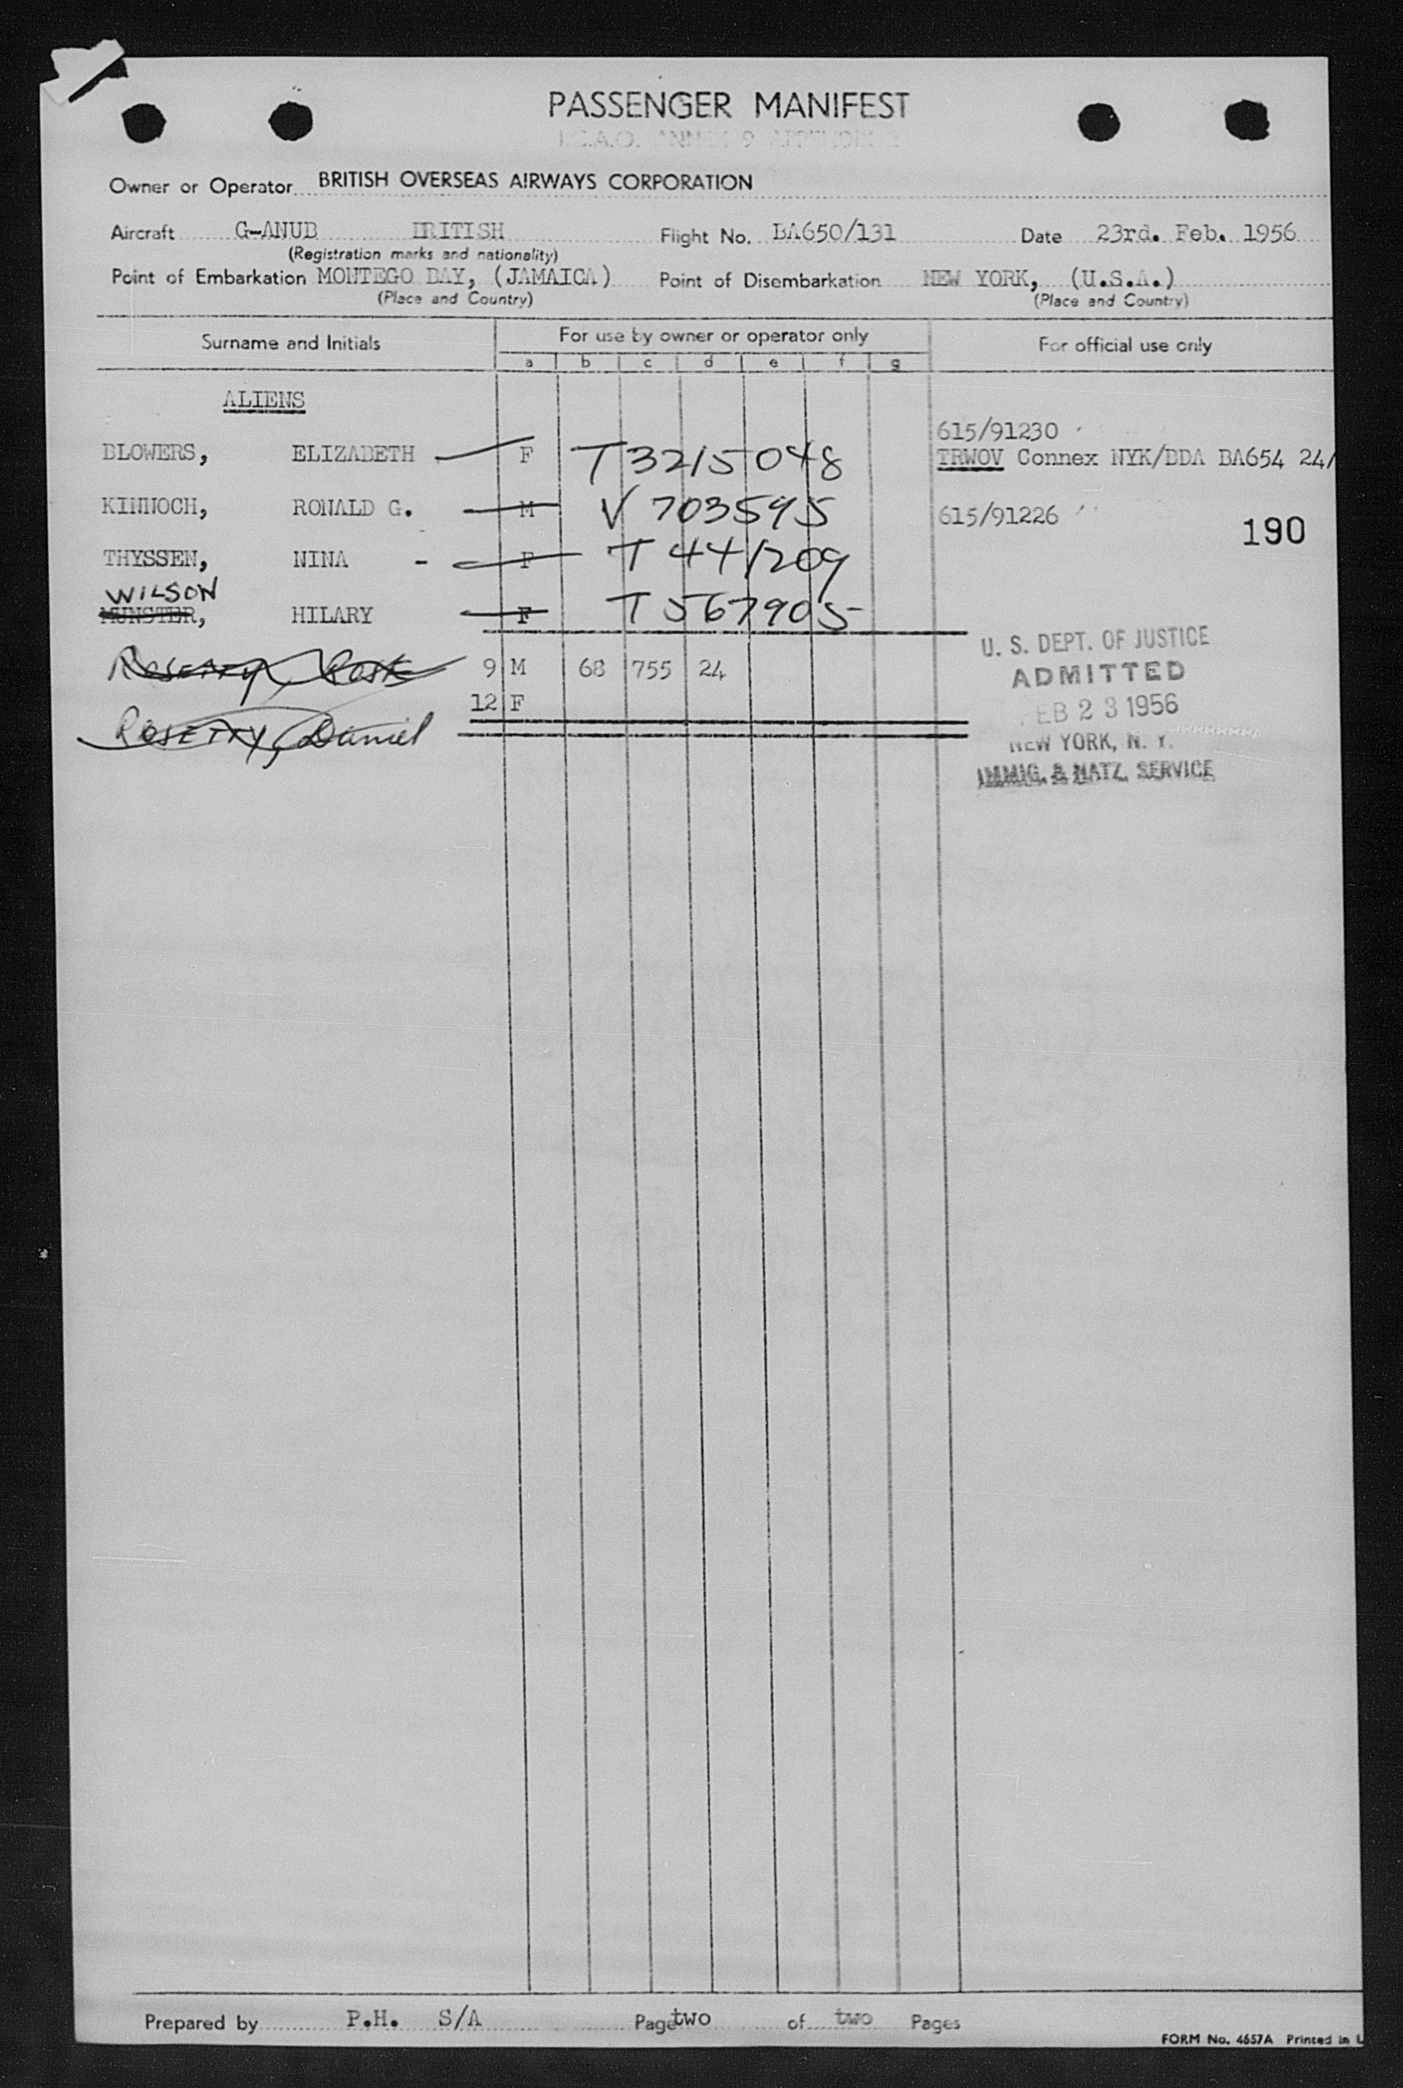 PASSENGER MANIFEST
I.C.A.O. ANNEX 9 APPENDIX
Owner or Operator BRITISH OVERSEAS AIRWAYS CORPORATION
Aircraft G-ANUB BRITISH Flight No. BA650/131 Date 23rd. Feb. 1956
(Registration marks and nationality)
Point of Embarkation MONTEGO BAY, (JAMAICA) Point of Disembarkation NEW YORK, (U.S.A.)
(Place and Country) (Place and Country)
Surname and Initials For use by owner or operator only For official use only
a b c d e f g
ALIENS
615/91230
BLOWERS, ELIZABETH F T3215048 TRWOV Connex NYK/BDA BA654 24/
KINNOCH, RONALD G. M V 703595 615/91226
190
THYSSEN, NINA - F T 441209
WILSON
MUNSTER, HILARY F T 567905
U. S. DEPT. OF JUSTICE
Rosetty, 9 M 68 755 24 ADMITTED
12 F FEB 23 1956
Rosetty, Daniel
NEW YORK, N. Y.
IMMIG. & NATZ. SERVICE
Prepared by P.H. S/A Page two of two Pages
FORM No. 4657A Printed in